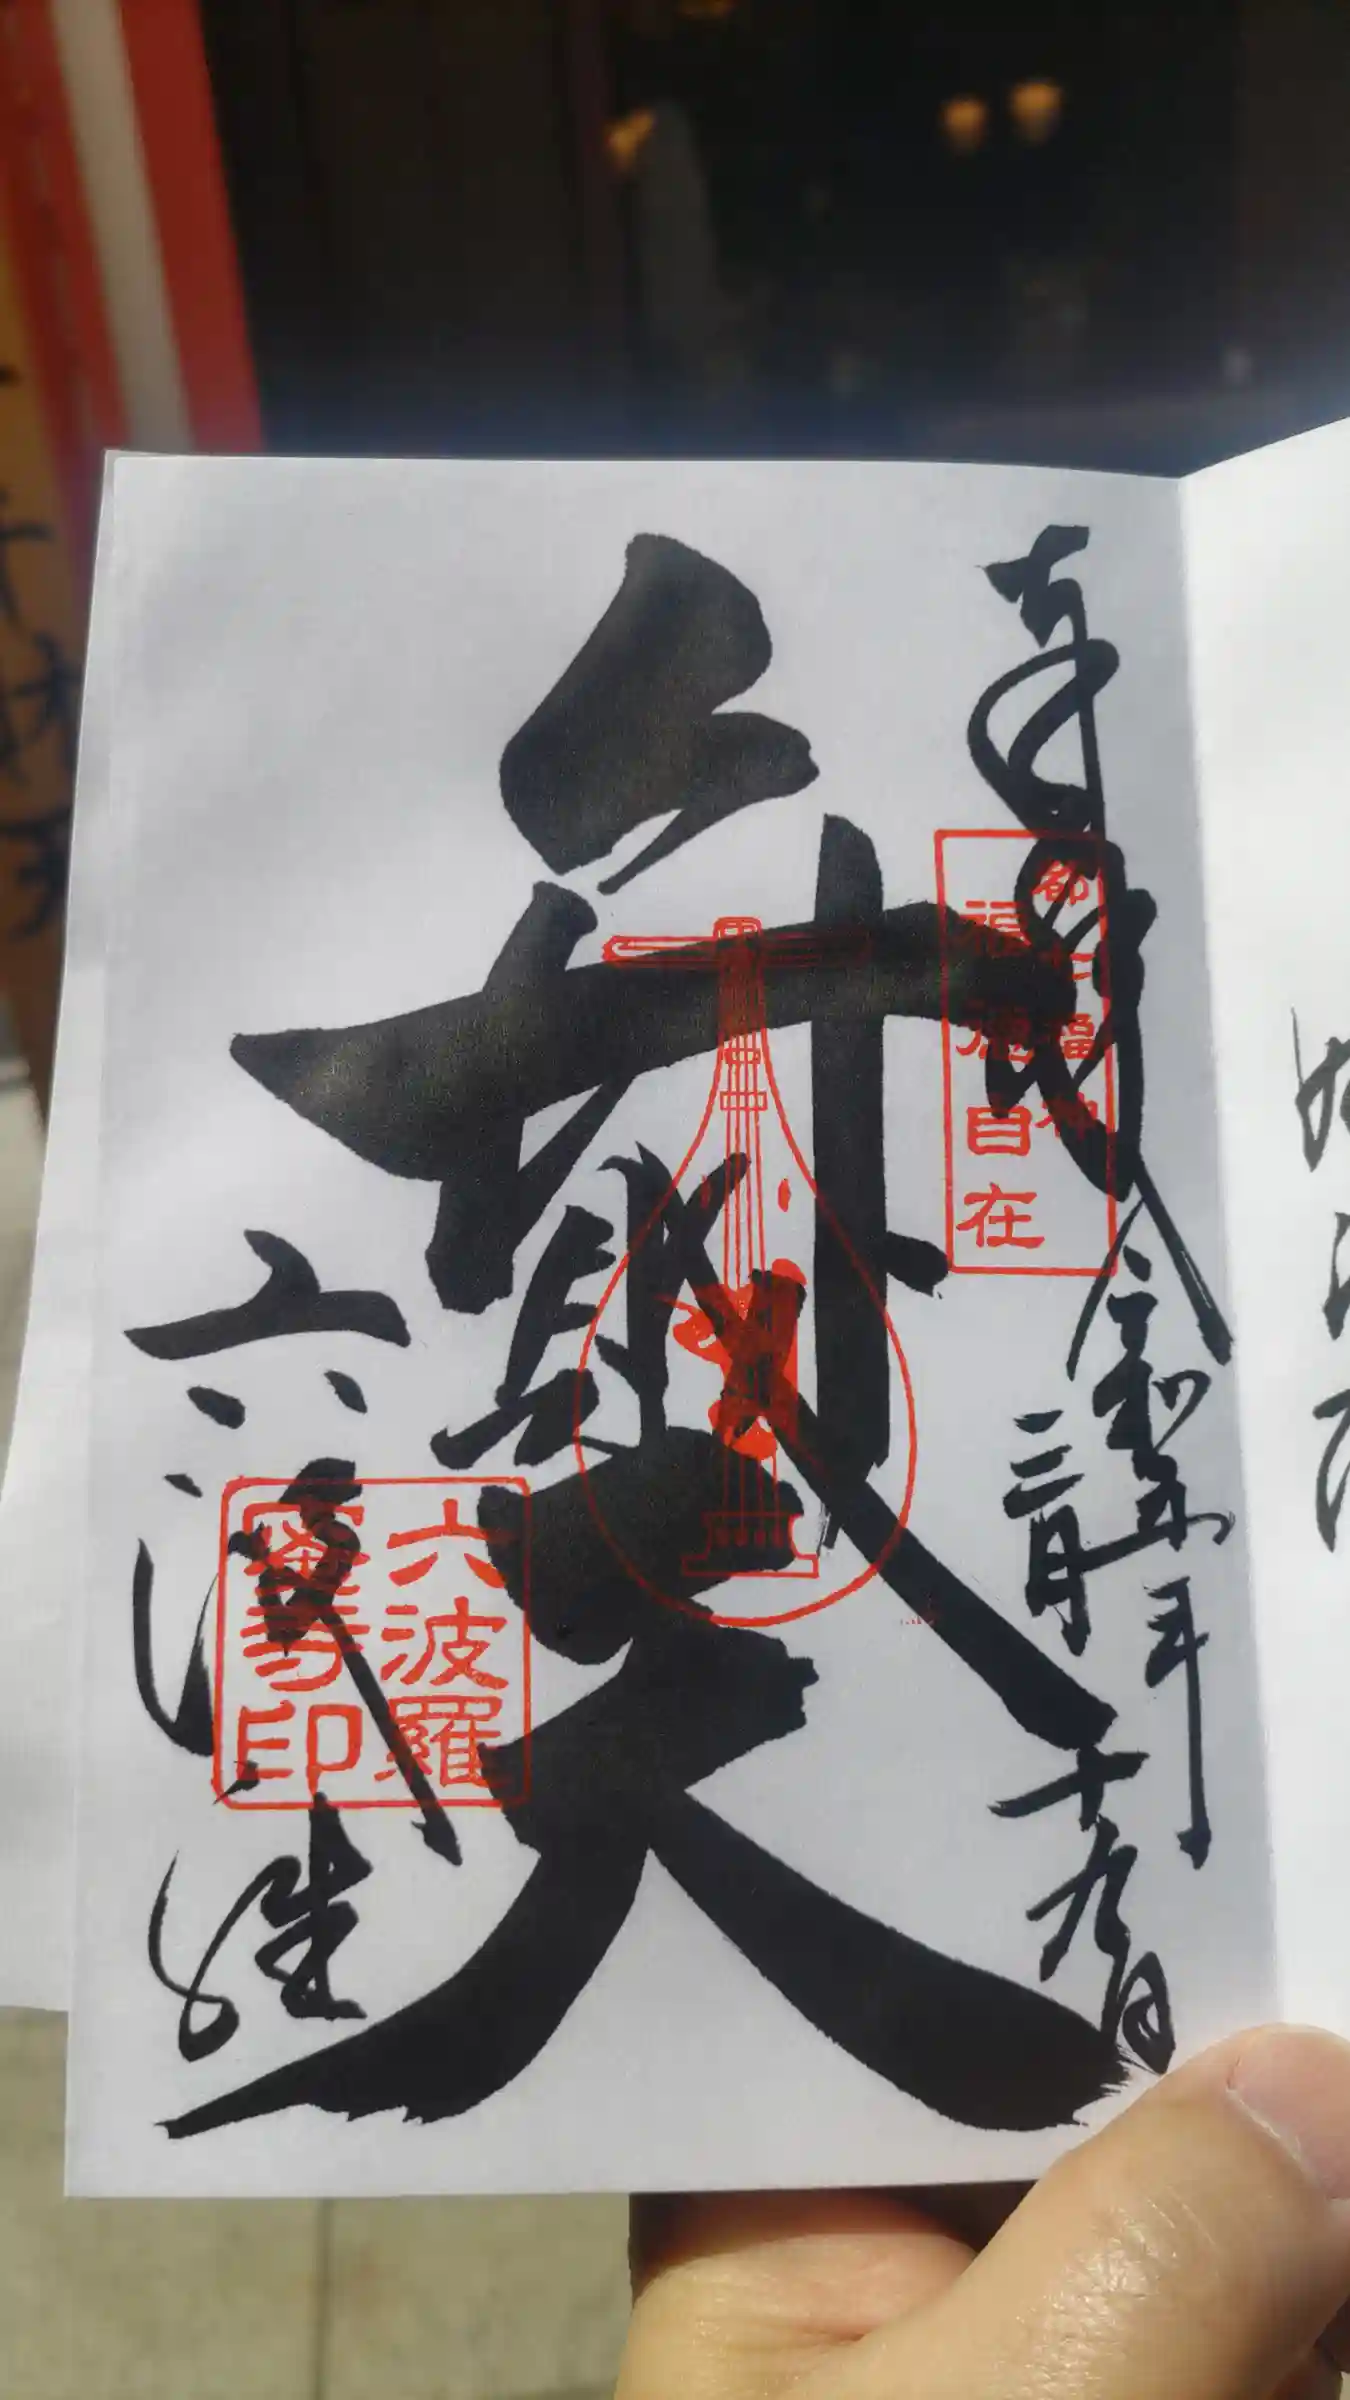 奉拝
都七福神
福徳自在
令和五年
三月十九日
弁財天
六波羅
六波羅
蜜寺印